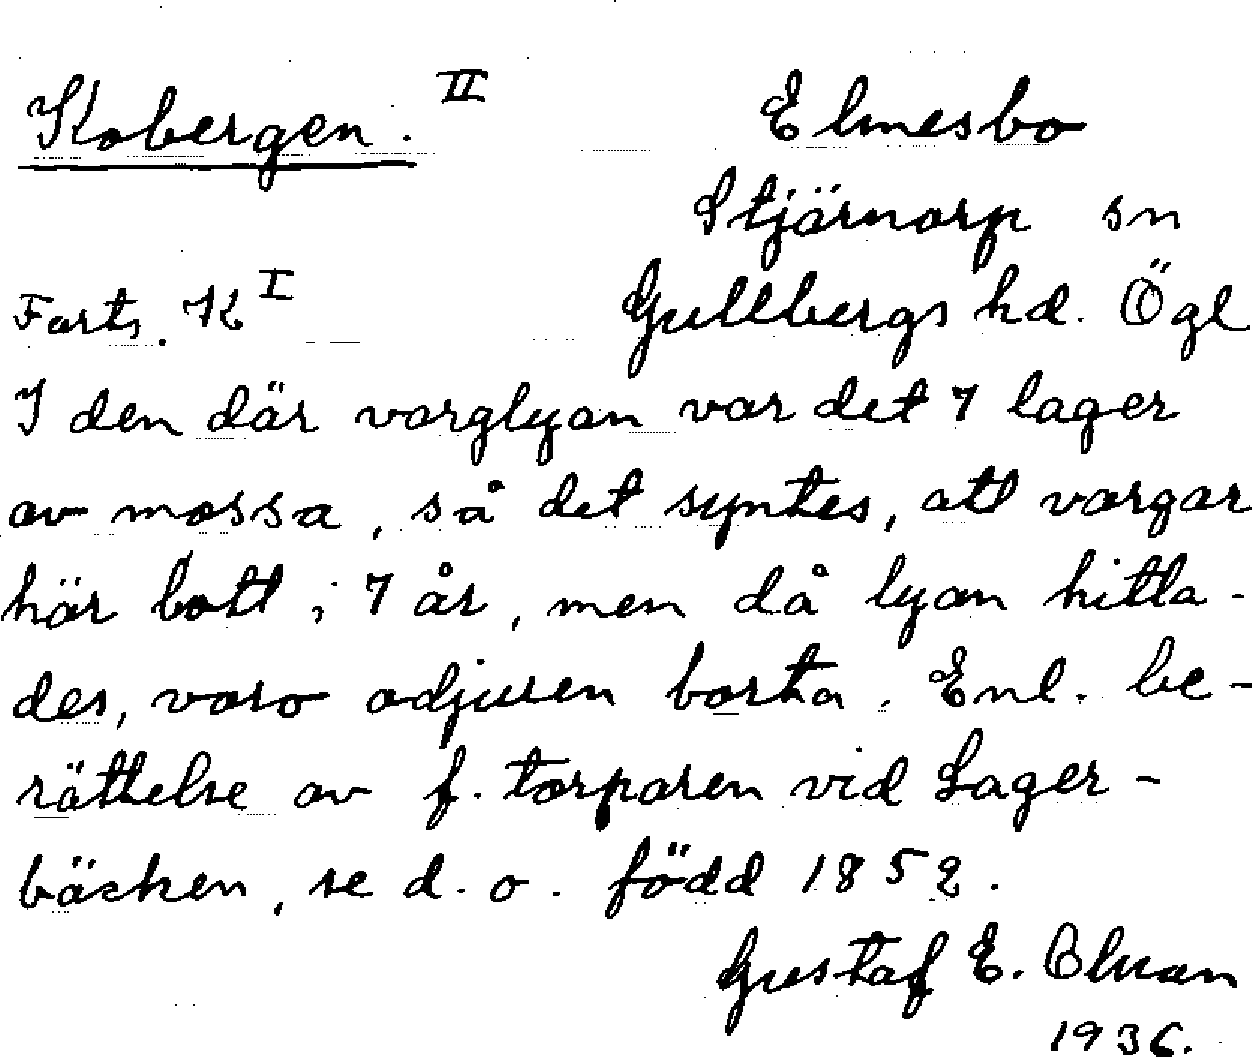 Kobergen. II
Elmesbo
Stjärnorp sn
Gullbergs hd. Ögl
Forts. K I
I den där varglyan var det 7 lager
av mossa, så det syntes, att vargar
här bott i 7 år, men då lyan hitta-
des, voro odjuren borta. Enl. be-
rättelse av f. torparen vid Lager-
bäcken, se d. o. född 1852.
Gustaf E. Olman
1936.